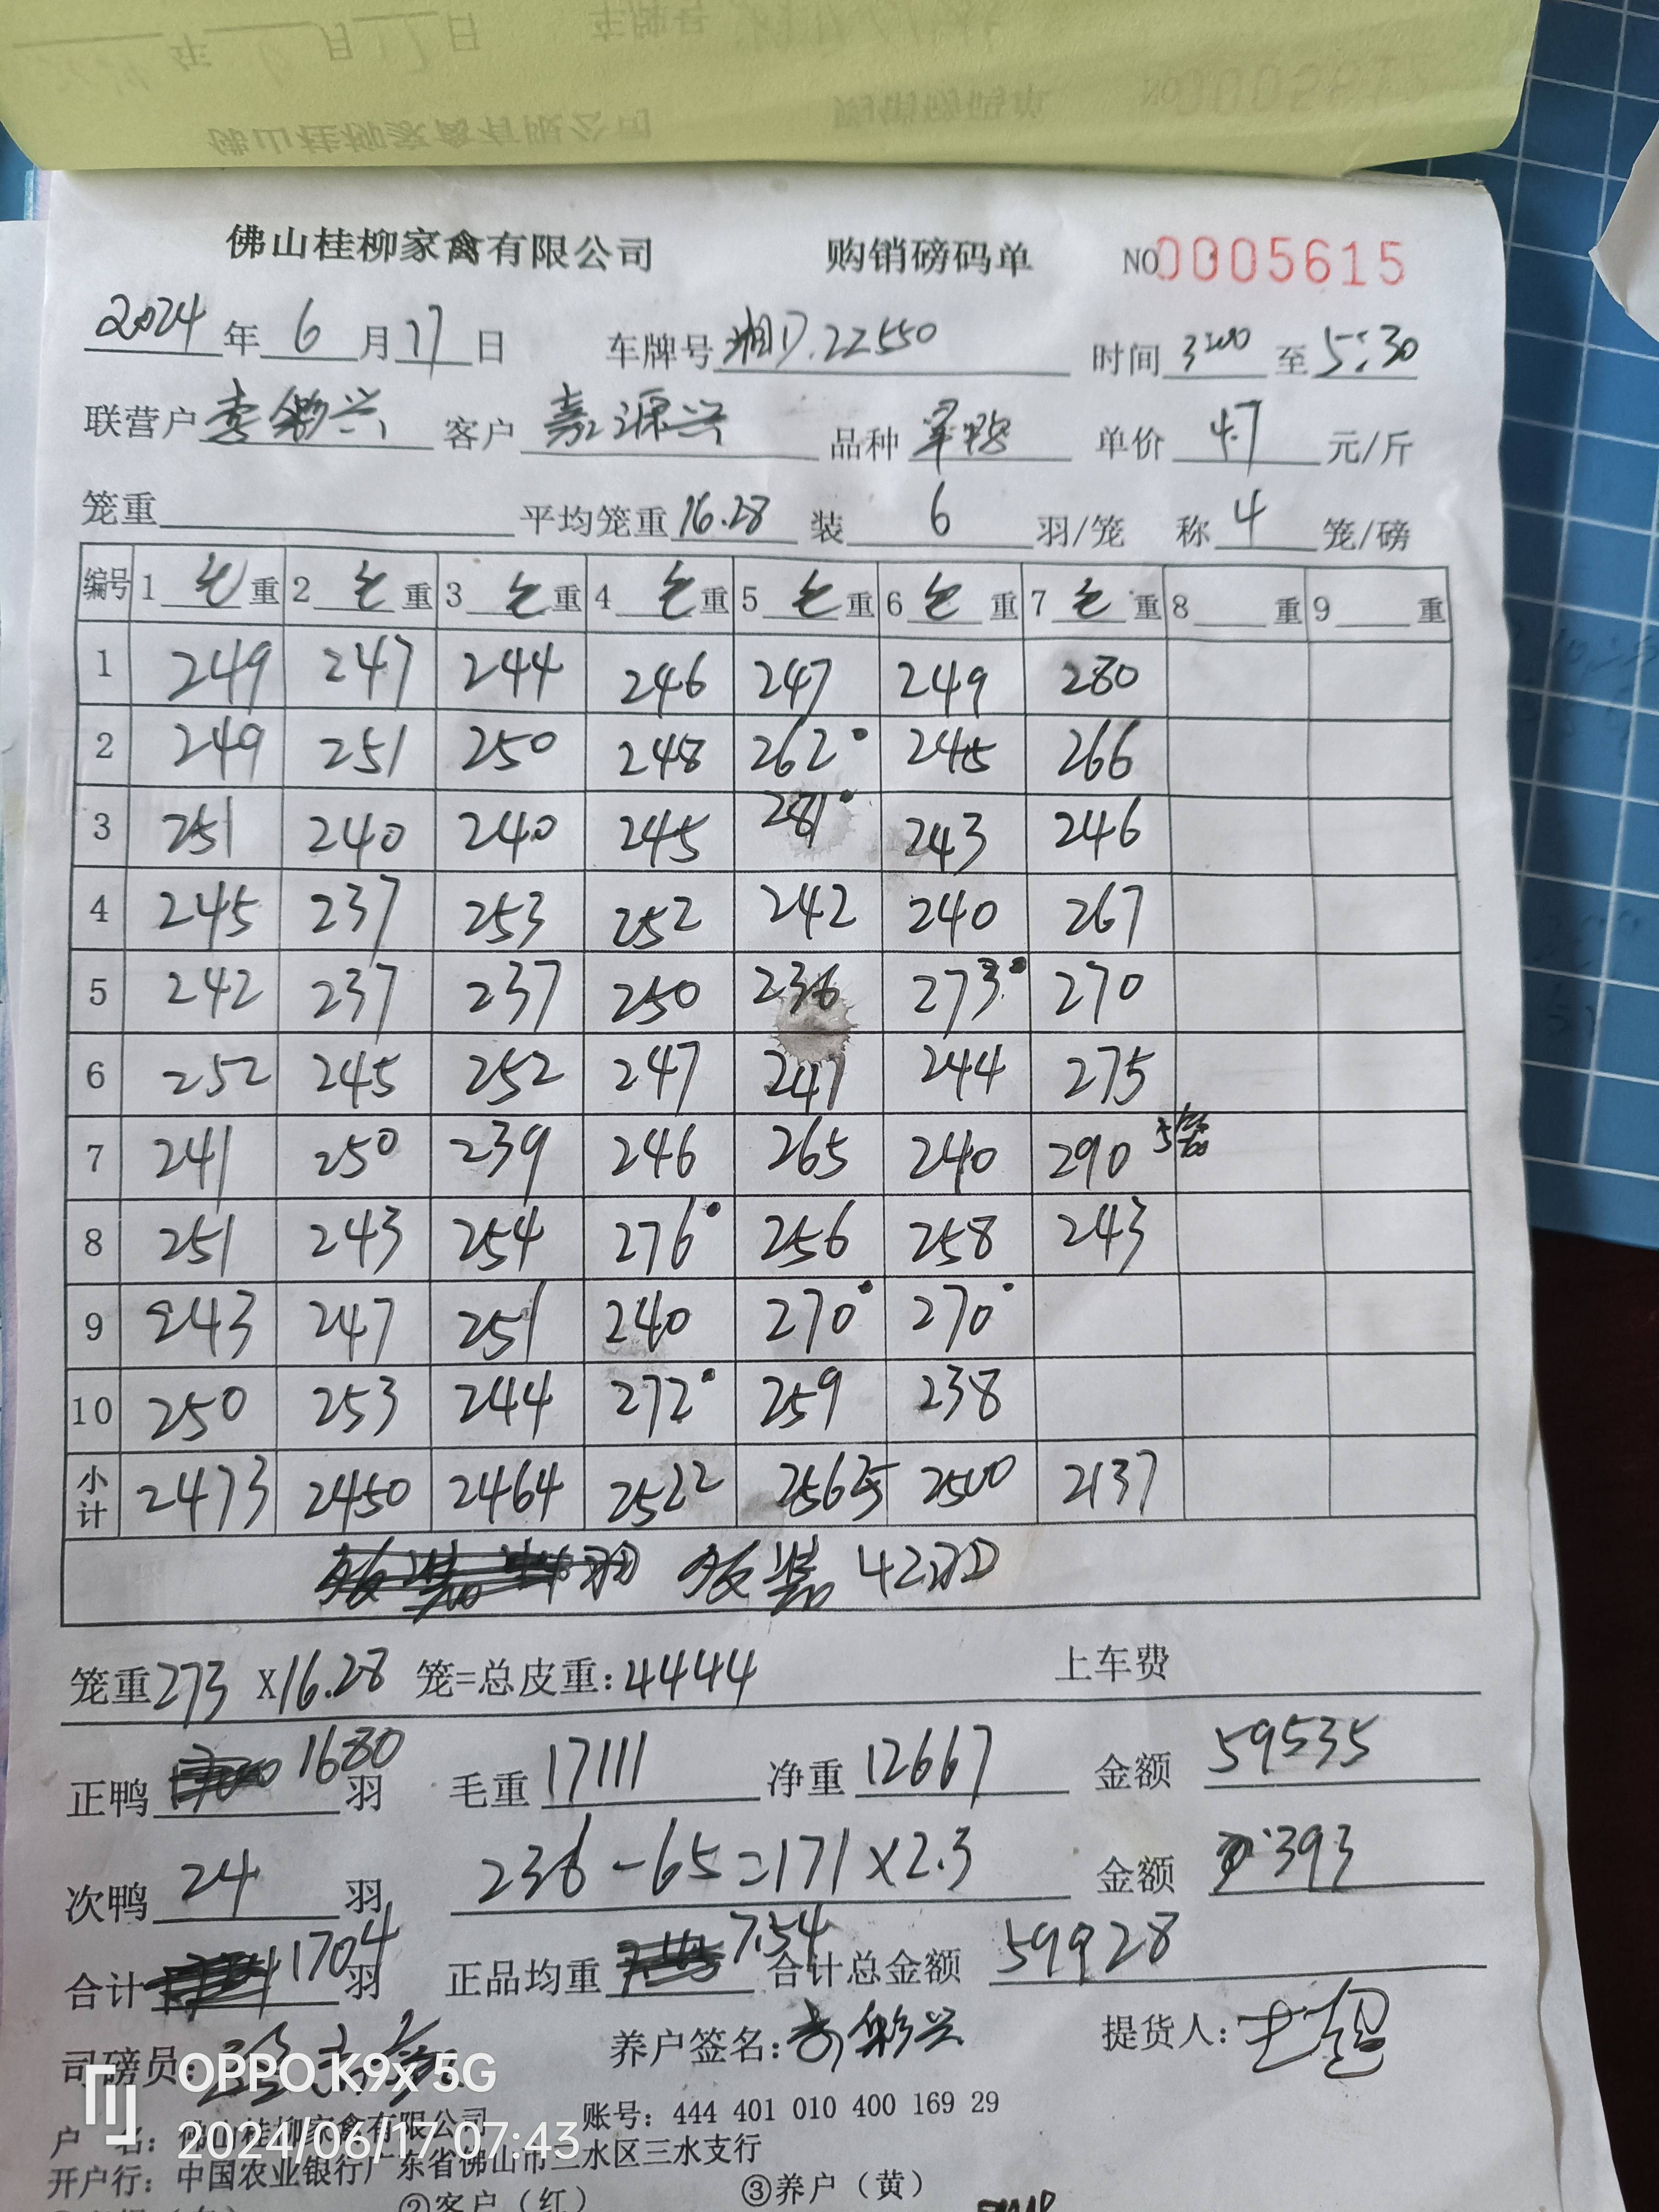 佛山桂柳家禽有限公司 购销磅码单 NO 0005615
2024年6月17日 车牌号湘D.22550 时间3:00至5:30
联营户 客户嘉源兴 品种 单价4.7元/斤
笼重 平均笼重16.28 装6羽/笼 称4笼/磅
编号 1毛重 2毛重 3毛重 4毛重 5毛重 6毛重 7毛重 8重 9重
1 249 247 244 246 247 249 280
2 249 251 250 248 262 245 266
3 251 240 240 245 281 243 246
4 245 237 253 252 242 240 267
5 242 237 237 250 236 273 270
6 252 245 252 247 247 244 275
7 241 250 239 246 265 240 290
8 251 243 254 276 256 258 243
9 243 247 251 240 270 270
10 250 253 244 272 259 238
小计 2473 2450 2464 2522 2565 2500 2137
装42羽
笼重273 X16.28 笼=总皮重:4444 上车费
正鸭1680羽 毛重17111 净重12667 金额59535
次鸭24羽 236-65=171×2.3 金额393
合计1704羽 正品均重7.54 合计总金额59928
司磅员: 养户签名: 提货人:
OPPO K9x 5G
户名: 佛山桂柳家禽有限公司 账号: 444 401 010 400 169 29
2024/06/17 07:43
开户行: 中国农业银行广东省佛山市三水区三水支行
②客户(红) ③养户(黄)